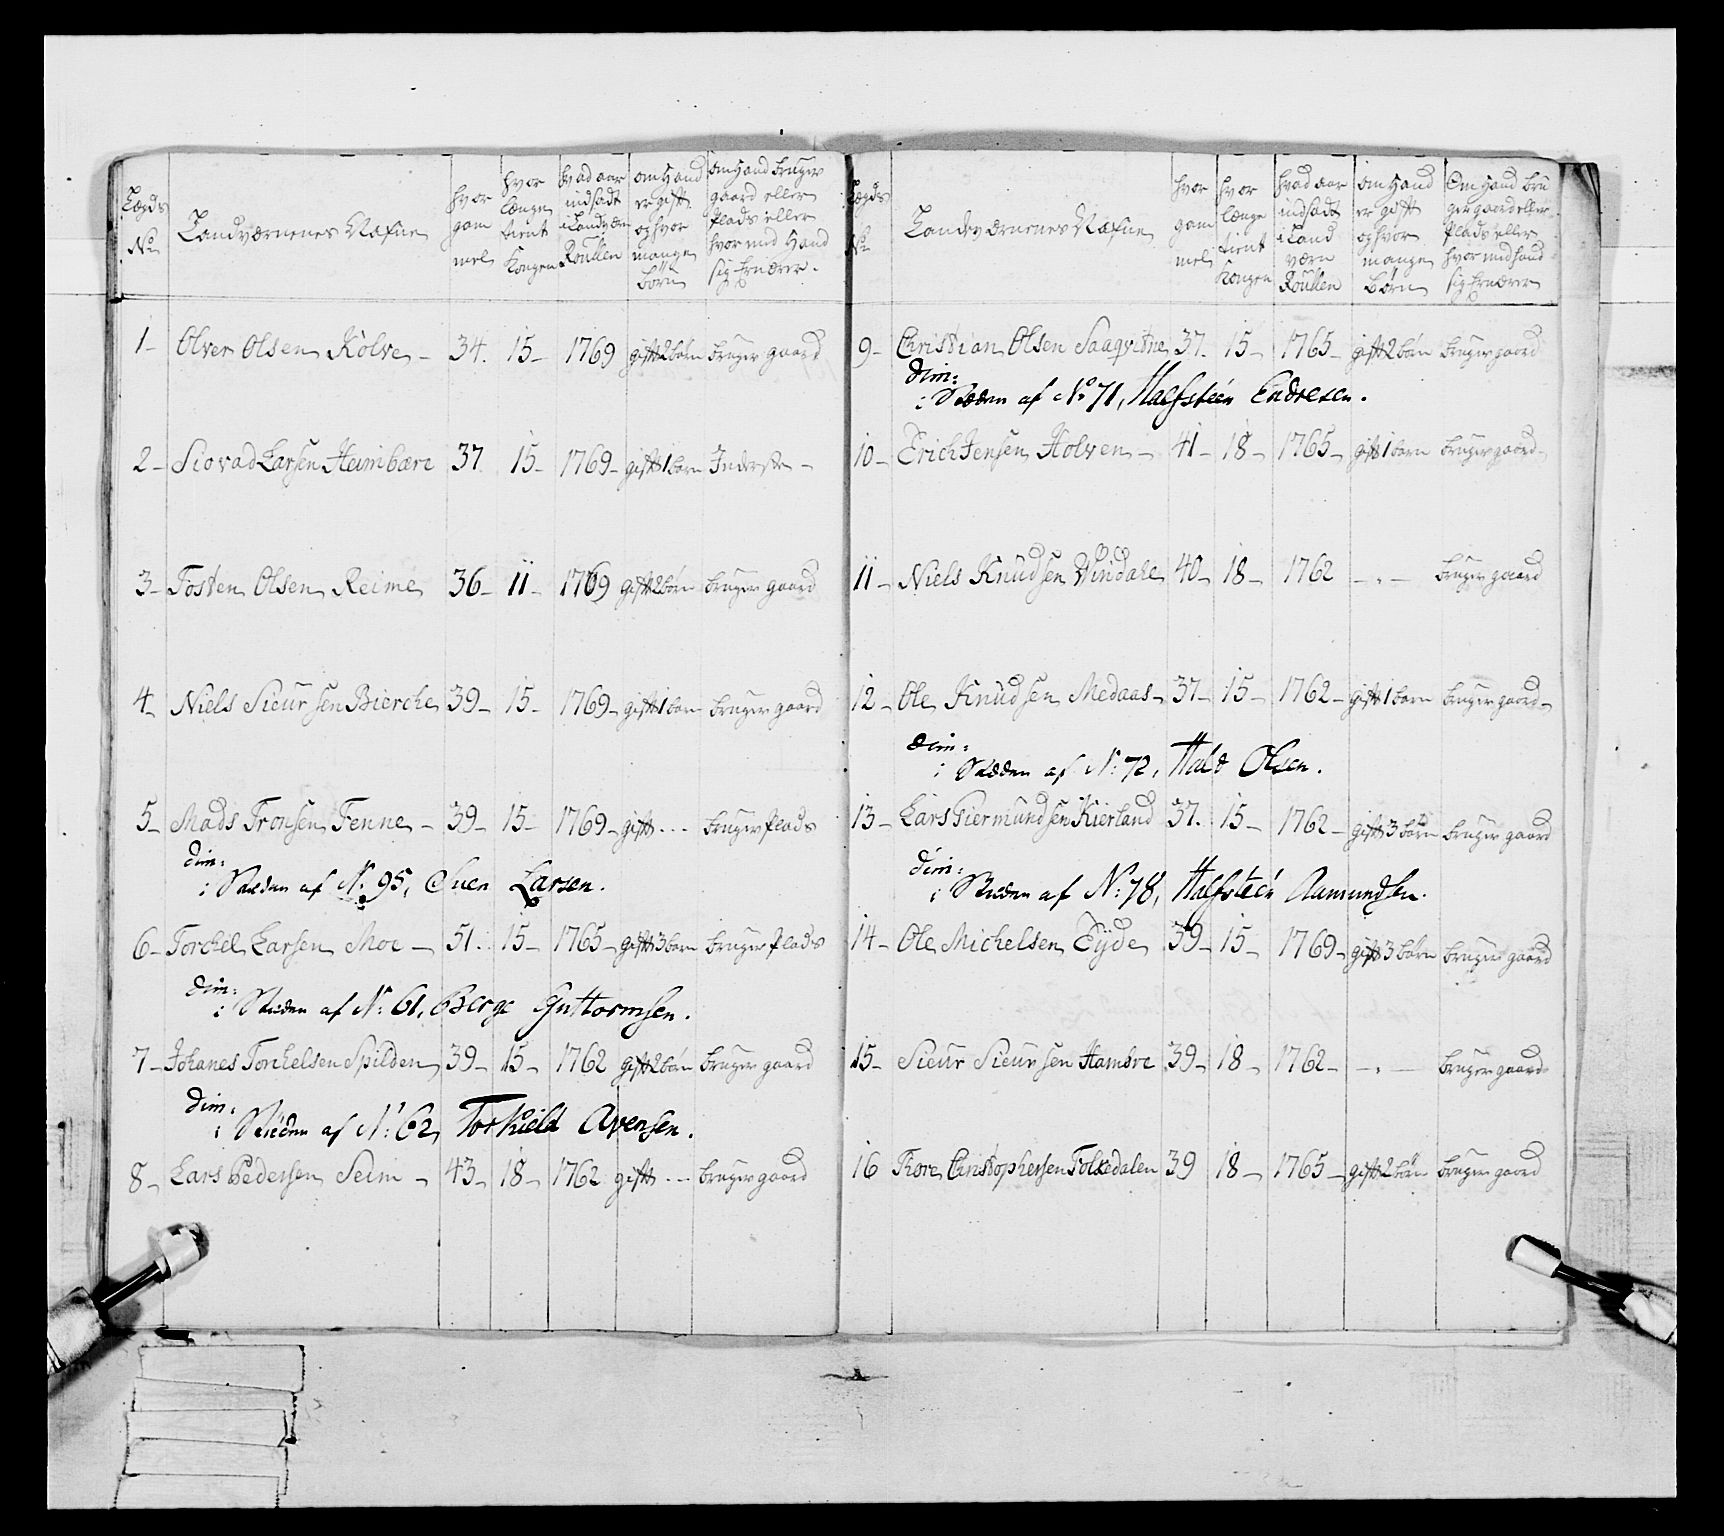 Lægds No Landværnenes Nafne hvor gam mel hvor længe tient Kongen hvad aar indsadt i Landværn Roullen om Hand er gift og hvor mange börn om Hand bruger gaard eller Plads eller hvor med Hand sig Ernærer.
1 - Olver Olsen Kölve - 34. 15 - 1769 gift 2 börn bruger gaard
2 - Siovad Larsen Heimbære 37. 15 - 1769 - gift 1 barn Inderste -
3 - Tosten Olsen Reime 36 - 11 - 1769 gift 2 börn bruger gaard
4 - Niels Sieursen Bierche 39 - 15 - 1769 - gift 1 barn bruger gaard
5 - Mads Tronsen Fenne - 39 - 15 - 1769 - gift - - - bruger Plads
dim:
i Stæden af No 95, Suen Larsen.
6 - Torchel Larsen Moe - 51. 15 - 1765 - gift 3 barn bruger Plads
dim:
i Stæden af No 61, Berge Guttormsen.
7 - Johanes Torchelsen Spilden 39 - 15 - 1762 gift 2 börn bruger gaard
dim:
i Stæden af No 62, Torkield Avensen.
8 - Lars Pedersen Seim - 43 - 18 - 1762 gift - - bruger gaard
Lægds No Landværnenes Nafne hvor gam mel hvor længe tient Kongen hvad aar indsadt i Land værn Roullen om Hand er gift og hvor mange Börn Om Hand bru ger gaard eller Plads eller hvor med hand sig Ernærer
9 - Christian Olsen Saaqvitne 37. 15 - 1765 - gift 2 börn bruger gaard
dim:
i Stæden af No 71, Halfsteen Endresen.
10 - Erich Jensen Holven - 41 - 18 - 1765 - gift 1 barn bruger gaard -
11 - Niels Knudsen Windahl 40 - 18 - 1762 - - - bruger gaard
12 - Ole Knudsen Medaas - 37 - 15 - 1762 - gift 1 barn bruger gaard -
dim:
i Stæden af No 72, Hald Olsen.
13 - Lars Piermundsen Kierland 37. 15 - 1762 - gift 3 börn bruger gaard
dim:
i Stæden af No 78, Halfsteen Aamundsen.
14 - Ole Michelsen Eyde 39 - 15 - 1769 - gift 3 börn bruger gaard
15 - Sieur Sieursen Hamöre 39 - 18 - 1762 - - - bruger gaard -
16 Tore Christophersen Folkedalen 39 18 - 1765 - gift 2 börn bruger gaard